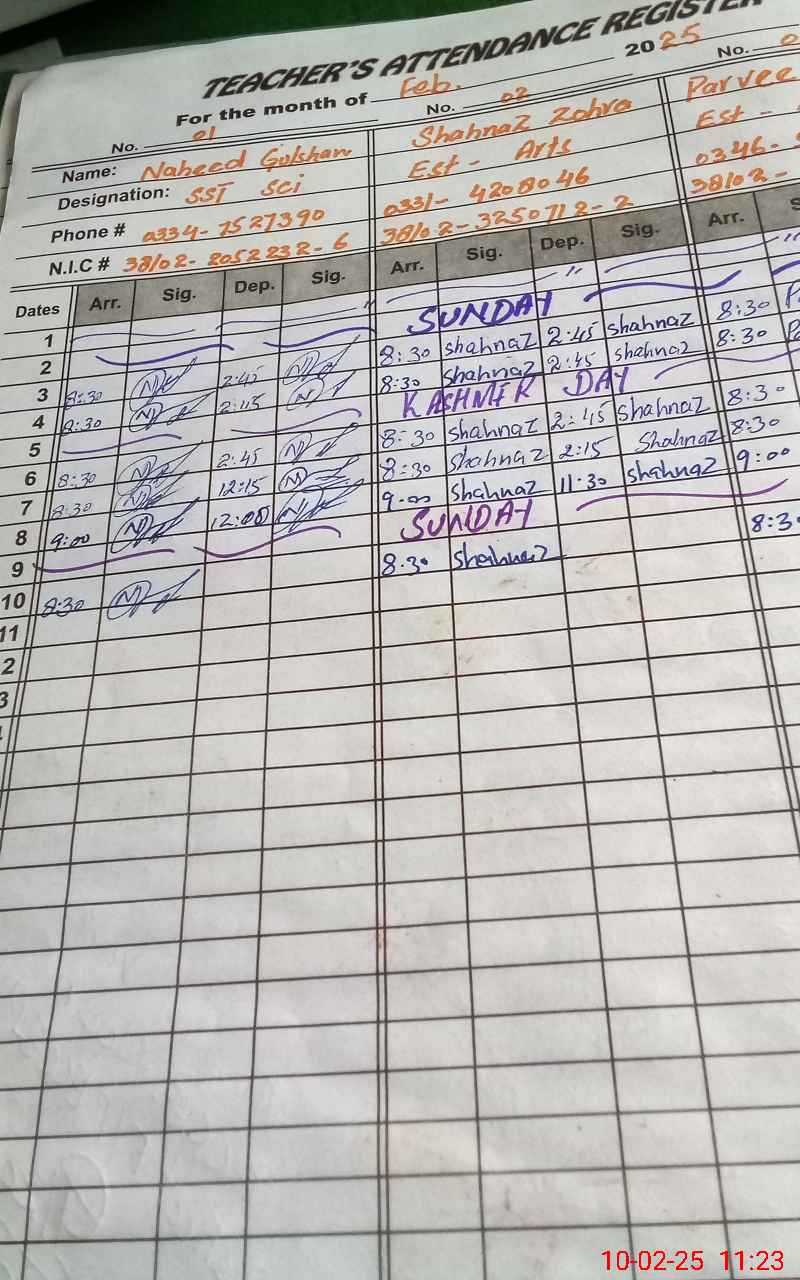 TEACHER'S ATTENDANCE REGISTER
For the month of Feb. 2025
No. 01 No. 02 No.
Name: Naheed Gulshan Shahnaz Zohra Parvee
Designation: SST Sci Est - Arts Est -
Phone # 0334-7527390 0331-4208046 0346-
N.I.C # 38102-2052232-6 38102-3250712-2 38102-
Dates Arr. Sig. Dep. Sig. Arr. Sig. Dep. Sig. Arr. S
1
2 SUNDAY
3 8:30 2:45 8:30 Shahnaz 2:45 Shahnaz 8:30
4 8:30 2:15 8:30 Shahnaz 2:45 Shahnaz 8:30
5 KASHMIR DAY
6 8:30 2:45 8:30 Shahnaz 2:45 Shahnaz 8:30
7 8:30 12:15 8:30 Shahnaz 2:15 Shahnaz 8:30
8 9:00 12:00 9:00 Shahnaz 11:30 Shahnaz 9:00
9 SUNDAY
10 8:30 8:30 Shahnaz 8:30
11
2
3
10-02-25 11:23